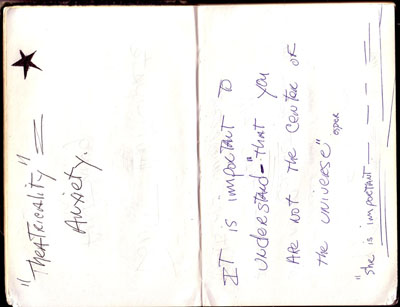 "THEATRICALITY" =
Anxiety.
IT is important to
understand "that you
Are not the center of
the universe" oper
"she is important